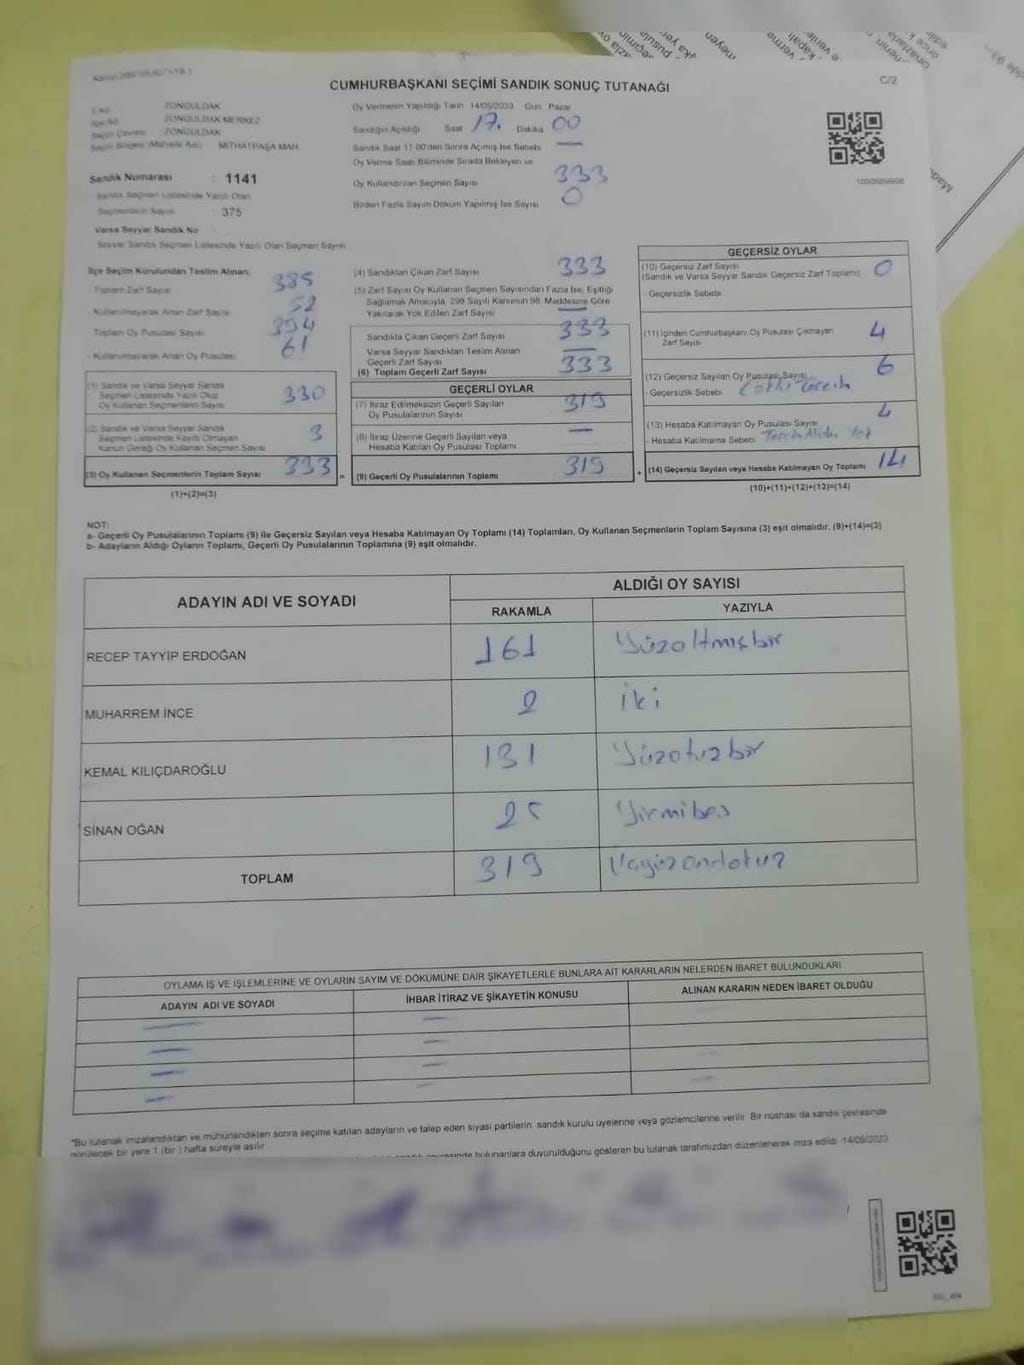 CUMHURBAŞKANI SEÇİMİ SANDIK SONUÇ TUTANAĞI
C/2
ZONGULDAK
ZONGULDAK MERKEZ
ZONGULDAK
MİTHATPAŞA MAH.
Sandık Numarası : 1141
Sandık Seçmen Listesinde Yazılı Olan
Seçmenlerin Sayısı : 375
Varsa Seyyar Sandık No
Seyyar Sandık Seçmen Listesinde Yazılı Olan Seçmen Sayısı
Oy Vermenin Yapıldığı Tarih 14/05/2023 Gün Pazar
Sandığın Açıldığı Saat 17. Dakika 00
Sandık Saat 17:00'den Sonra Açılmış İse Sebebi —
Oy Verme Saati Bitiminde Sırada Bekleyen ve
Oy Kullandırılan Seçmen Sayısı 333
Birden Fazla Sayım Döküm Yapılmış İse Sayısı 0
İlçe Seçim Kurulundan Teslim Alınan:
- Toplam Zarf Sayısı 385
- Kullanılmayarak Artan Zarf Sayısı 52
Toplam Oy Pusulası Sayısı 394
- Kullanılmayarak Artan Oy Pusulası 61
(1) Sandık ve Varsa Seyyar Sandık
Seçmen Listesinde Yazılı Olup
Oy Kullanan Seçmenlerin Sayısı 330
(2) Sandık ve Varsa Seyyar Sandık
Seçmen Listesinde Kayıtlı Olmayan
Kanun Gereği Oy Kullanan Seçmen Sayısı 3
(3) Oy Kullanan Seçmenlerin Toplam Sayısı 333 =
(1)+(2)=(3)
(4) Sandıktan Çıkan Zarf Sayısı 333
(5) Zarf Sayısı Oy Kullanan Seçmen Sayısından Fazla İse, Eşitliği
Sağlamak Amacıyla, 298 Sayılı Kanunun 98. Maddesine Göre
Yakılarak Yok Edilen Zarf Sayısı —
Sandıkta Çıkan Geçerli Zarf Sayısı 333
Varsa Seyyar Sandıktan Teslim Alınan
Geçerli Zarf Sayısı —
(6) Toplam Geçerli Zarf Sayısı 333
GEÇERLİ OYLAR
(7) İtiraz Edilmeksizin Geçerli Sayılan
Oy Pusulalarının Sayısı 319
(8) İtiraz Üzerine Geçerli Sayılan veya
Hesaba Katılan Oy Pusulası Toplamı —
(9) Geçerli Oy Pusulalarının Toplamı 319 +
GEÇERSİZ OYLAR
(10) Geçersiz Zarf Sayısı
(Sandık ve Varsa Seyyar Sandık Geçersiz Zarf Toplamı) 0
- Geçersizlik Sebebi
(11) İçinden Cumhurbaşkanı Oy Pusulası Çıkmayan
Zarf Sayısı 4
(12) Geçersiz Sayılan Oy Pusulası Sayısı 6
- Geçersizlik Sebebi
(13) Hesaba Katılmayan Oy Pusulası Sayısı 4
- Hesaba Katılmama Sebebi
(14) Geçersiz Sayılan veya Hesaba Katılmayan Oy Toplamı 14
(10)+(11)+(12)+(13)=(14)
NOT:
a- Geçerli Oy Pusulalarının Toplamı (9) ile Geçersiz Sayılan veya Hesaba Katılmayan Oy Toplamı (14) Toplamları, Oy Kullanan Seçmenlerin Toplam Sayısına (3) eşit olmalıdır. (9)+(14)=(3)
b- Adayların Aldığı Oyların Toplamı, Geçerli Oy Pusulalarının Toplamına (9) eşit olmalıdır.
ADAYIN ADI VE SOYADI
ALDIĞI OY SAYISI
RAKAMLA YAZIYLA
RECEP TAYYİP ERDOĞAN 161 Yüzaltmışbir
MUHARREM İNCE 2 iki
KEMAL KILIÇDAROĞLU 131 Yüzotuzbir
SİNAN OĞAN 25 Yirmibeş
TOPLAM 319
OYLAMA İŞ VE İŞLEMLERİNE VE OYLARIN SAYIM VE DÖKÜMÜNE DAİR ŞİKAYETLERLE BUNLARA AİT KARARLARIN NELERDEN İBARET BULUNDUKLARI
ADAYIN ADI VE SOYADI İHBAR İTİRAZ VE ŞİKAYETİN KONUSU ALINAN KARARIN NEDEN İBARET OLDUĞU
*Bu tutanak imzalandıktan ve mühürlendikten sonra seçime katılan adayların ve talep eden siyasi partilerin sandık kurulu üyelerine veya gözlemcilerine verilir. Bir nüshası da sandık çevresinde
görülecek bir yere 1 (bir) hafta süreyle asılır.
bulunanlara duyurulduğunu gösteren bu tutanak tarafımızdan düzenlenerek imza edildi. 14/05/2023